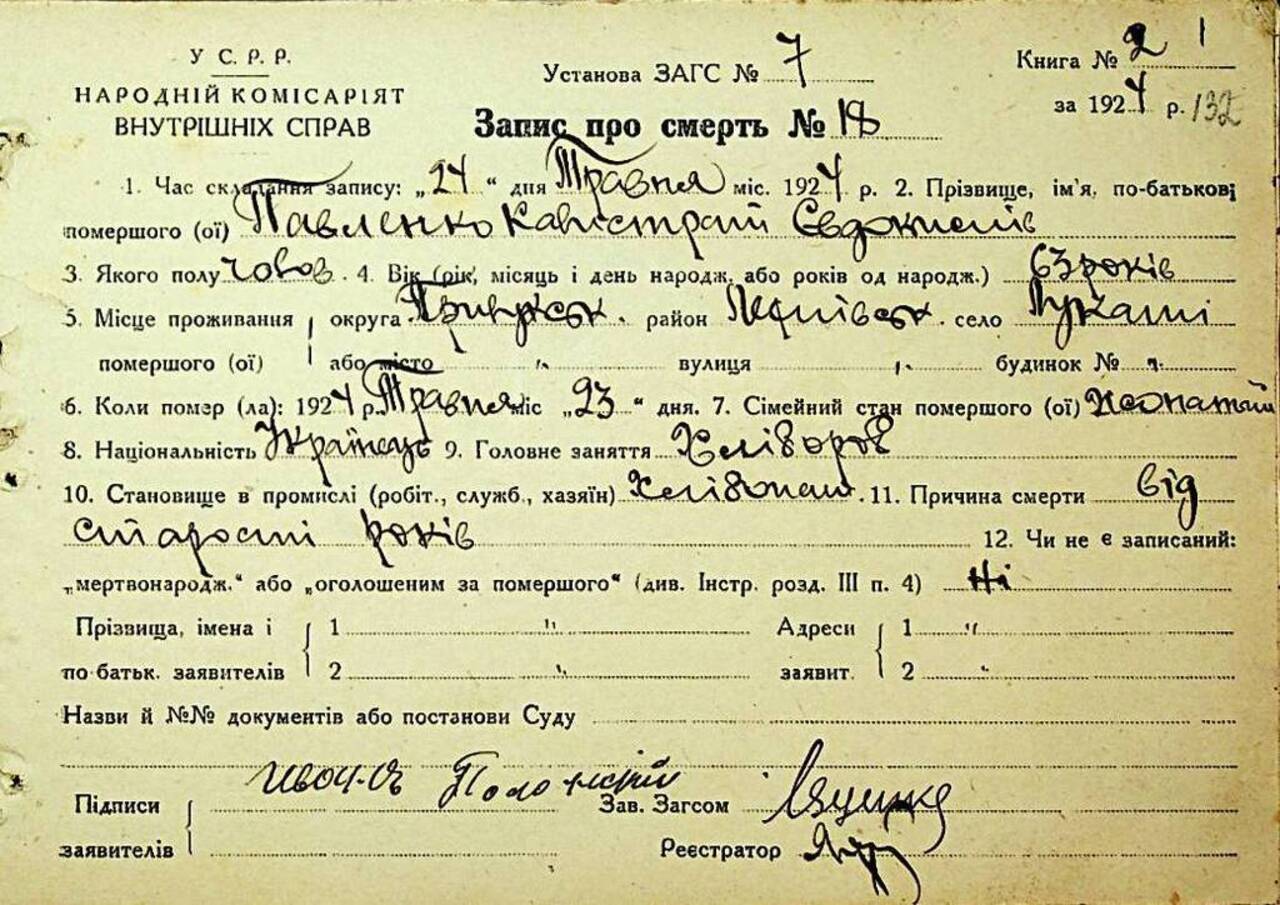 У С. Р. Р.
НАРОДНІЙ КОМІСАРІЯТ
ВНУТРІШНІХ СПРАВ
Установа ЗАГС № 7
Книга № 2
за 1924 р. 132
Запис про смерть № 18
1. Час складання запису: „24“ дня Травня міс. 1924 р. 2. Прізвище, ім'я, по-батькові
помершого (ої) Павленко Калістрат Євдокимів
3. Якого полу чолов. 4. Вік (рік, місяць і день народж. або років од народж.) 63 років
5. Місце проживання округа Прилуцьк. район село
помершого (ої) або місто " вулиця " будинок № "
6. Коли помер (ла): 1924 р. Травня міс „23“ дня. 7. Сімейний стан помершого (ої) Жонатий
8. Національність Українець 9. Головне заняття Хлібороб
10. Становище в промислі (робіт., служб., хазяїн) 11. Причина смерти від
старости років 12. Чи не є записаний:
„мертвонародж.“ або „оголошеним за помершого“ (див. Інстр. розд. III п. 4) Ні
Прізвища, імена і 1 " Адреси 1 "
по батьк. заявителів 2 " заявит. 2 "
Назви й №№ документів або постанови Суду
Підписи Зав. Загсом
заявителів Реєстратор